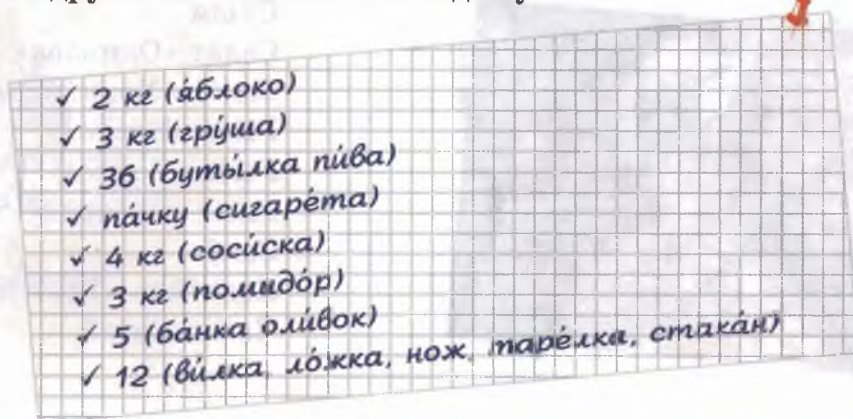 ✓ 2 кг (я́блоко)
✓ 3 кг (гру́ша)
✓ 36 (буты́лка пи́ва)
✓ па́чку (сигаре́та)
✓ 4 кг (соси́ска)
✓ 3 кг (помидо́р)
✓ 5 (ба́нка оли́вок)
✓ 12 (ви́лка, ло́жка, нож, таре́лка, стака́н)